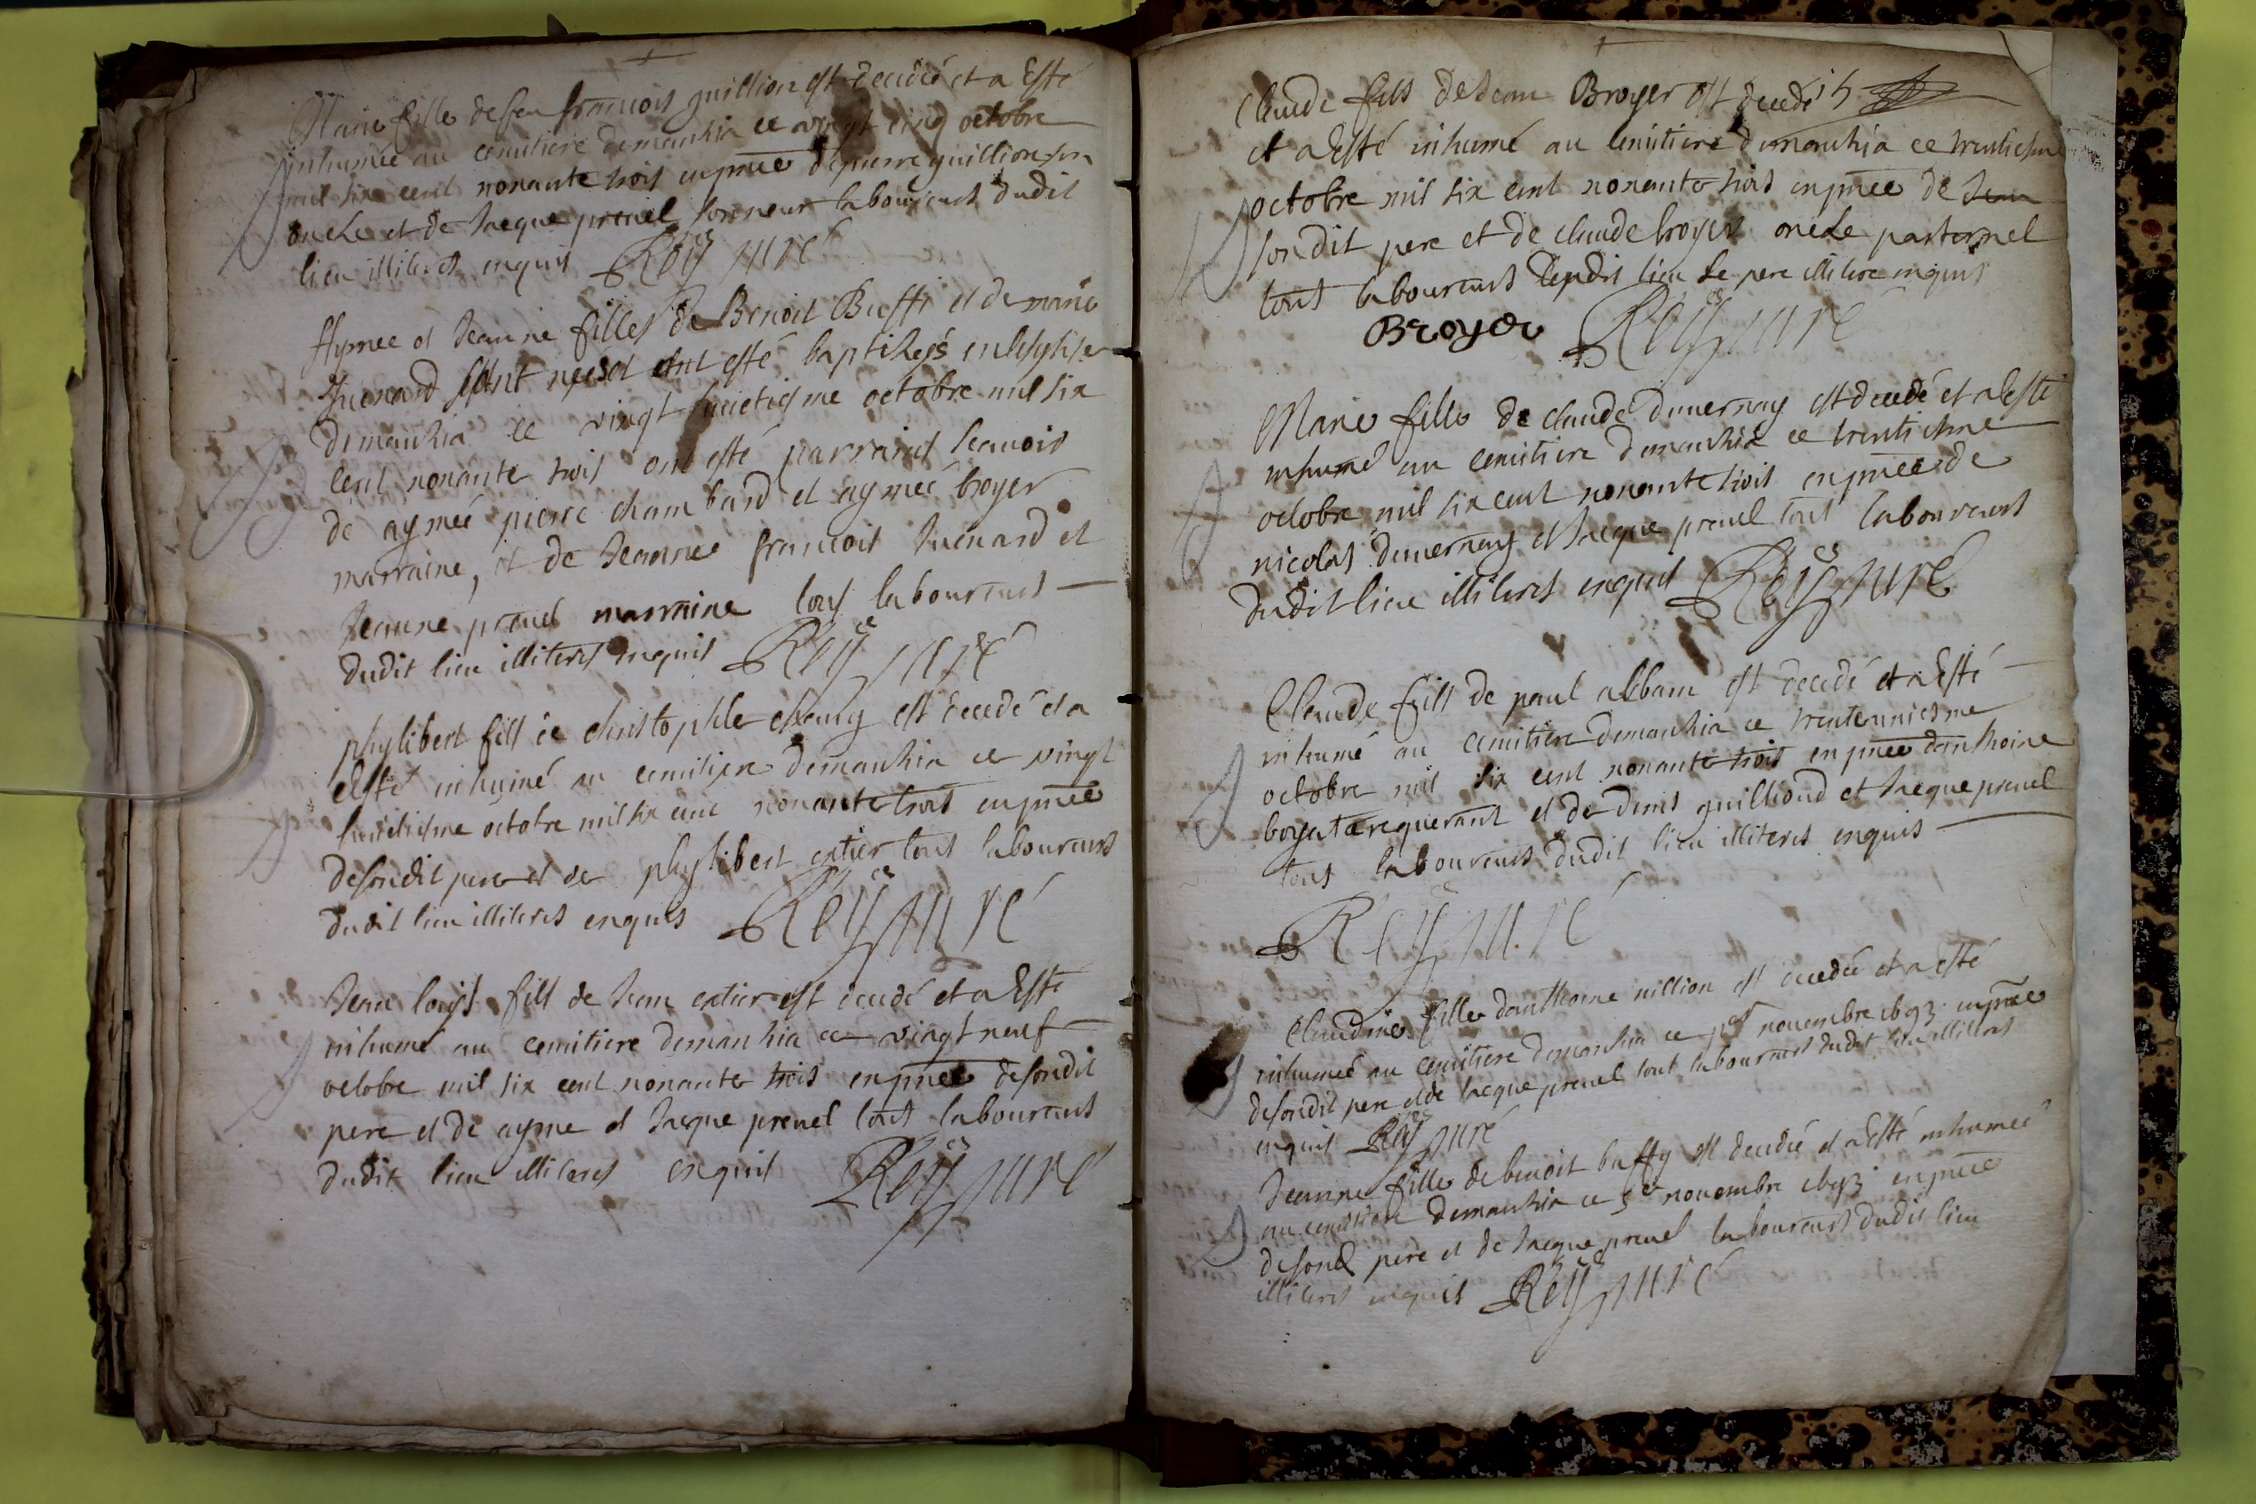 Marie fille de feu francois guillion est decedé et a Esté
inhumée au cemitiere demanhia ce vingt cinq octobre
mil six cent nonante trois en pnce de pierre guillion son
oncle et de Jacque prevel sonneur laboureurs dudit
lieu illiteres enquis Reÿ curé
Aymee et Jeanne filles de Benoit Buffi et de marie
Juenard sont nees et ont esté baptisées en leglise
demanhia ce vingt huictiesme octobre mil six
cent nonante trois ont esté parrains scavoir
de aymeé pierre chambard et aymeé broyer
marraine, et de Jeanne francois Juenard et
Jeanne prevel marraine tous laboureurs
dudit lieu illiteres enquis Reÿ curé
phylibert fils de christophle chevry est decedé et a
Esté inhumé au cemitiere demanhia ce vingt
huictiesme octobre mil six cent nonante trois en pnce
de sondit pere et de phylibert extier tous laboureurs
dudit lieu illiteres enquis Reÿ curé
Jean louys fils de Jean extier est decedé et a Esté
inhumé au cemitiere demanhia ce vingt neuf
octobre mil six cent nonante trois en pnce de sondit
pere et de ayme et Jacque prevel tous laboureurs
dudit lieu illiteres enquis Reÿ curé
Claude fils de Jean Broyer est decedé
et a Esté inhumé au cemitiere demanhia ce trentiesme
octobre mil six cent nonante trois en pnce de Jean
sondit pere et de claude broyer oncle parternel
tous laboureurs dudit lieu le pere illitere enquis
Broyer Reÿ curé
Marie fille de claude duvernay est decedé et a Esté
inhumé au cemitiere demanhia ce trentiesme
octobre mil six cent nonante trois en pnce de
nicolas duvernay et Jacque prevel tous laboureurs
dudit lieu illiteres enquis Reÿ curé
Claude fils de paul alban est decedé et a Esté
inhumé au cemitiere demanhia ce trenteuniesme
octobre mil six cent nonante trois en pnce danthoine
requerant et de denis guilliond et Jacque prevel
tous laboureurs dudit lieu illiteres enquis
Reÿ curé
Claudine fille danthoine nillion est decedée et a esté
inhumeé au cemitiere demanhia ce per novembre 1693 en pnce
de sondit pere et de Jacque prevel tous laboureurs dudit lieu illiteres
enquis Reÿ curé
Jeanne fille de benoit buffy est decedeé et a Esté inhumeé
au cemitiere demanhia ce 3e novembre 1693 en pnce
de sond pere et de Jacque prevel laboureurs dudit lieu
illiteres enquis Reÿ curé